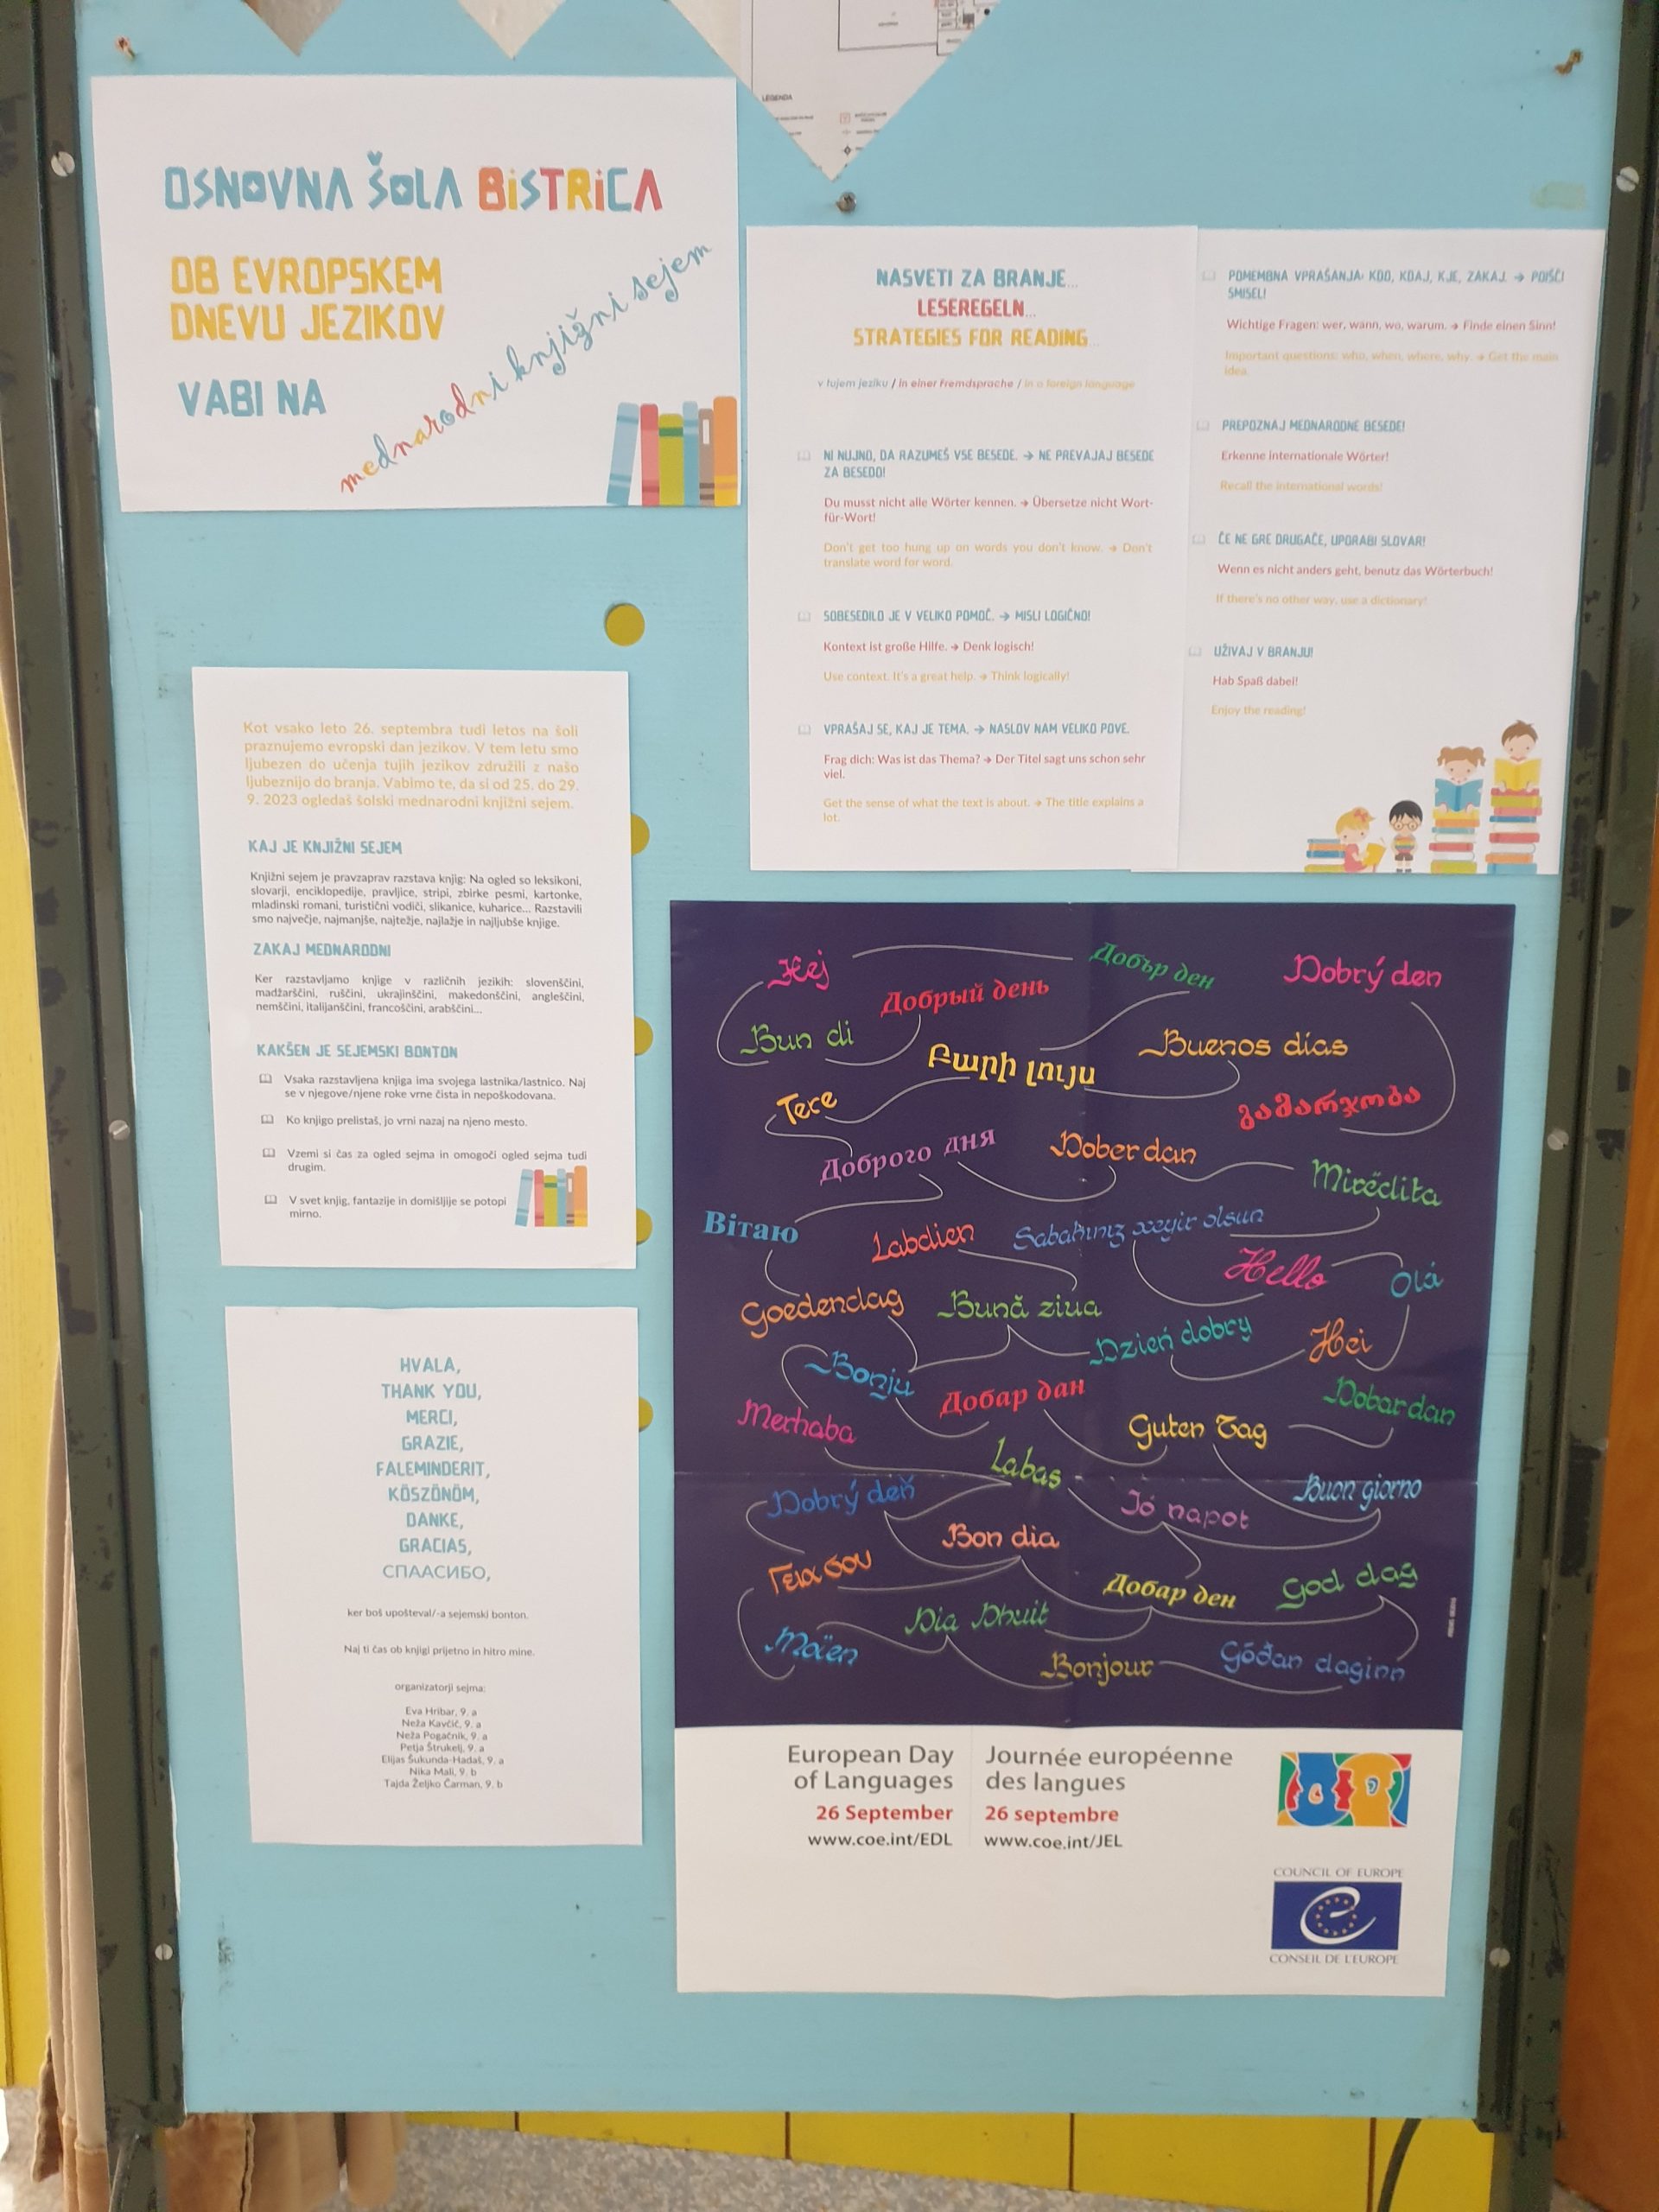 LEGENDA
OSNOVNA ŠOLA BISTRICA
OB EVROPSKEM
DNEVU JEZIKOV
VABI NA
mednarodni knjižni sejem
NASVETI ZA BRANJE...
LESEREGELN...
STRATEGIES FOR READING...
v tujem jeziku / in einer fremdsprache / in a foreign language
NI NUJNO, DA RAZUMEŠ VSE BESEDE. → NE PREVAJAJ BESEDE
ZA BESEDO!
Du musst nicht alle Wörter kennen. → Übersetze nicht Wort-
für-Wort!
Don't get too hung up on words you don't know. → Don't
translate word for word.
SOBESEDILO JE V VELIKO POMOČ. → MISLI LOGIČNO!
Kontext ist große Hilfe. → Denk logisch!
Use context. It's a great help. → Think logically!
VPRAŠAJ SE, KAJ JE TEMA. → NASLOV NAM VELIKO POVE.
Frag dich: Was ist das Thema? → Der Titel sagt uns schon sehr
viel.
Get the sense of what the text is about. → The title explains a
lot.
POMEMBNA VPRAŠANJA: KDO, KDAJ, KJE, ZAKAJ. → POIŠČI
SMISEL!
Wichtige Fragen: wer, wann, wo, warum. → Finde einen Sinn!
Important questions: who, when, where, why. → Get the main
idea.
PREPOZNAJ MEDNARODNE BESEDE!
Erkenne internationale Wörter!
Recall the international words!
ČE NE GRE DRUGAČE, UPORABI SLOVAR!
Wenn es nicht anders geht, benutz das Wörterbuch!
If there's no other way, use a dictionary!
UŽIVAJ V BRANJU!
Hab Spaß dabei!
Enjoy the reading!
Kot vsako leto 26. septembra tudi letos na šoli
praznujemo evropski dan jezikov. V tem letu smo
ljubezen do učenja tujih jezikov združili z našo
ljubeznijo do branja. Vabimo te, da si od 25. do 29.
9. 2023 ogledaš šolski mednarodni knjižni sejem.
KAJ JE KNJIŽNI SEJEM
Knjižni sejem je pravzaprav razstava knjig: Na ogled so leksikoni,
slovarji, enciklopedije, pravljice, stripi, zbirke pesmi, kartonke,
mladinski romani, turistični vodiči, slikanice, kuharice... Razstavili
smo največje, najmanjše, najtežje, najlažje in najljubše knjige.
ZAKAJ MEDNARODNI
Ker razstavljamo knjige v različnih jezikih: slovenščini,
madžarščini, ruščini, ukrajinščini, makedonščini, angleščini,
nemščini, italijanščini, francoščini, arabščini...
KAKŠEN JE SEJEMSKI BONTON
Vsaka razstavljena knjiga ima svojega lastnika/lastnico. Naj
se v njegove/njene roke vrne čista in nepoškodovana.
Ko knjigo prelistaš, jo vrni nazaj na njeno mesto.
Vzemi si čas za ogled sejma in omogoči ogled sejma tudi
drugim.
V svet knjig, fantazije in domišljije se potopi
mirno.
HVALA,
THANK YOU,
MERCI,
GRAZIE,
FALEMINDERIT,
KÖSZÖNÖM,
DANKE,
GRACIAS,
СПААСИБО,
ker boš upošteval/-a sejemski bonton.
Naj ti čas ob knjigi prijetno in hitro mine.
organizatorji sejma:
Eva Hribar, 9. a
Neža Kavčič, 9. a
Neža Pogačnik, 9. a
Petja Štrukelj, 9. a
Elijas Šukunda-Hadaš, 9. a
Nika Mali, 9. b
Tajda Željko Čarman, 9. b
Hej
Добър ден
Dobrý den
Добрый день
Bun di
Բարի լույս
Buenos días
Tere
გამარჯობა
Доброго дня
Dober dan
Mirëdita
Вітаю
Labdien
Sabahınız xeyir olsun
Hello
Olá
Goedendag
Bună ziua
Dzień dobry
Hei
Bonju
Добар дан
Dobar dan
Merhaba
Guten Tag
Labas
Dobrý deň
Jó napot
Buon giorno
Bon dia
Γεια σου
Добар ден
God dag
Dia Dhuit
Moïen
Bonjour
Góðan daginn
European Day
of Languages
26 September
www.coe.int/EDL
Journée européenne
des langues
26 septembre
www.coe.int/JEL
COUNCIL OF EUROPE
CONSEIL DE L'EUROPE